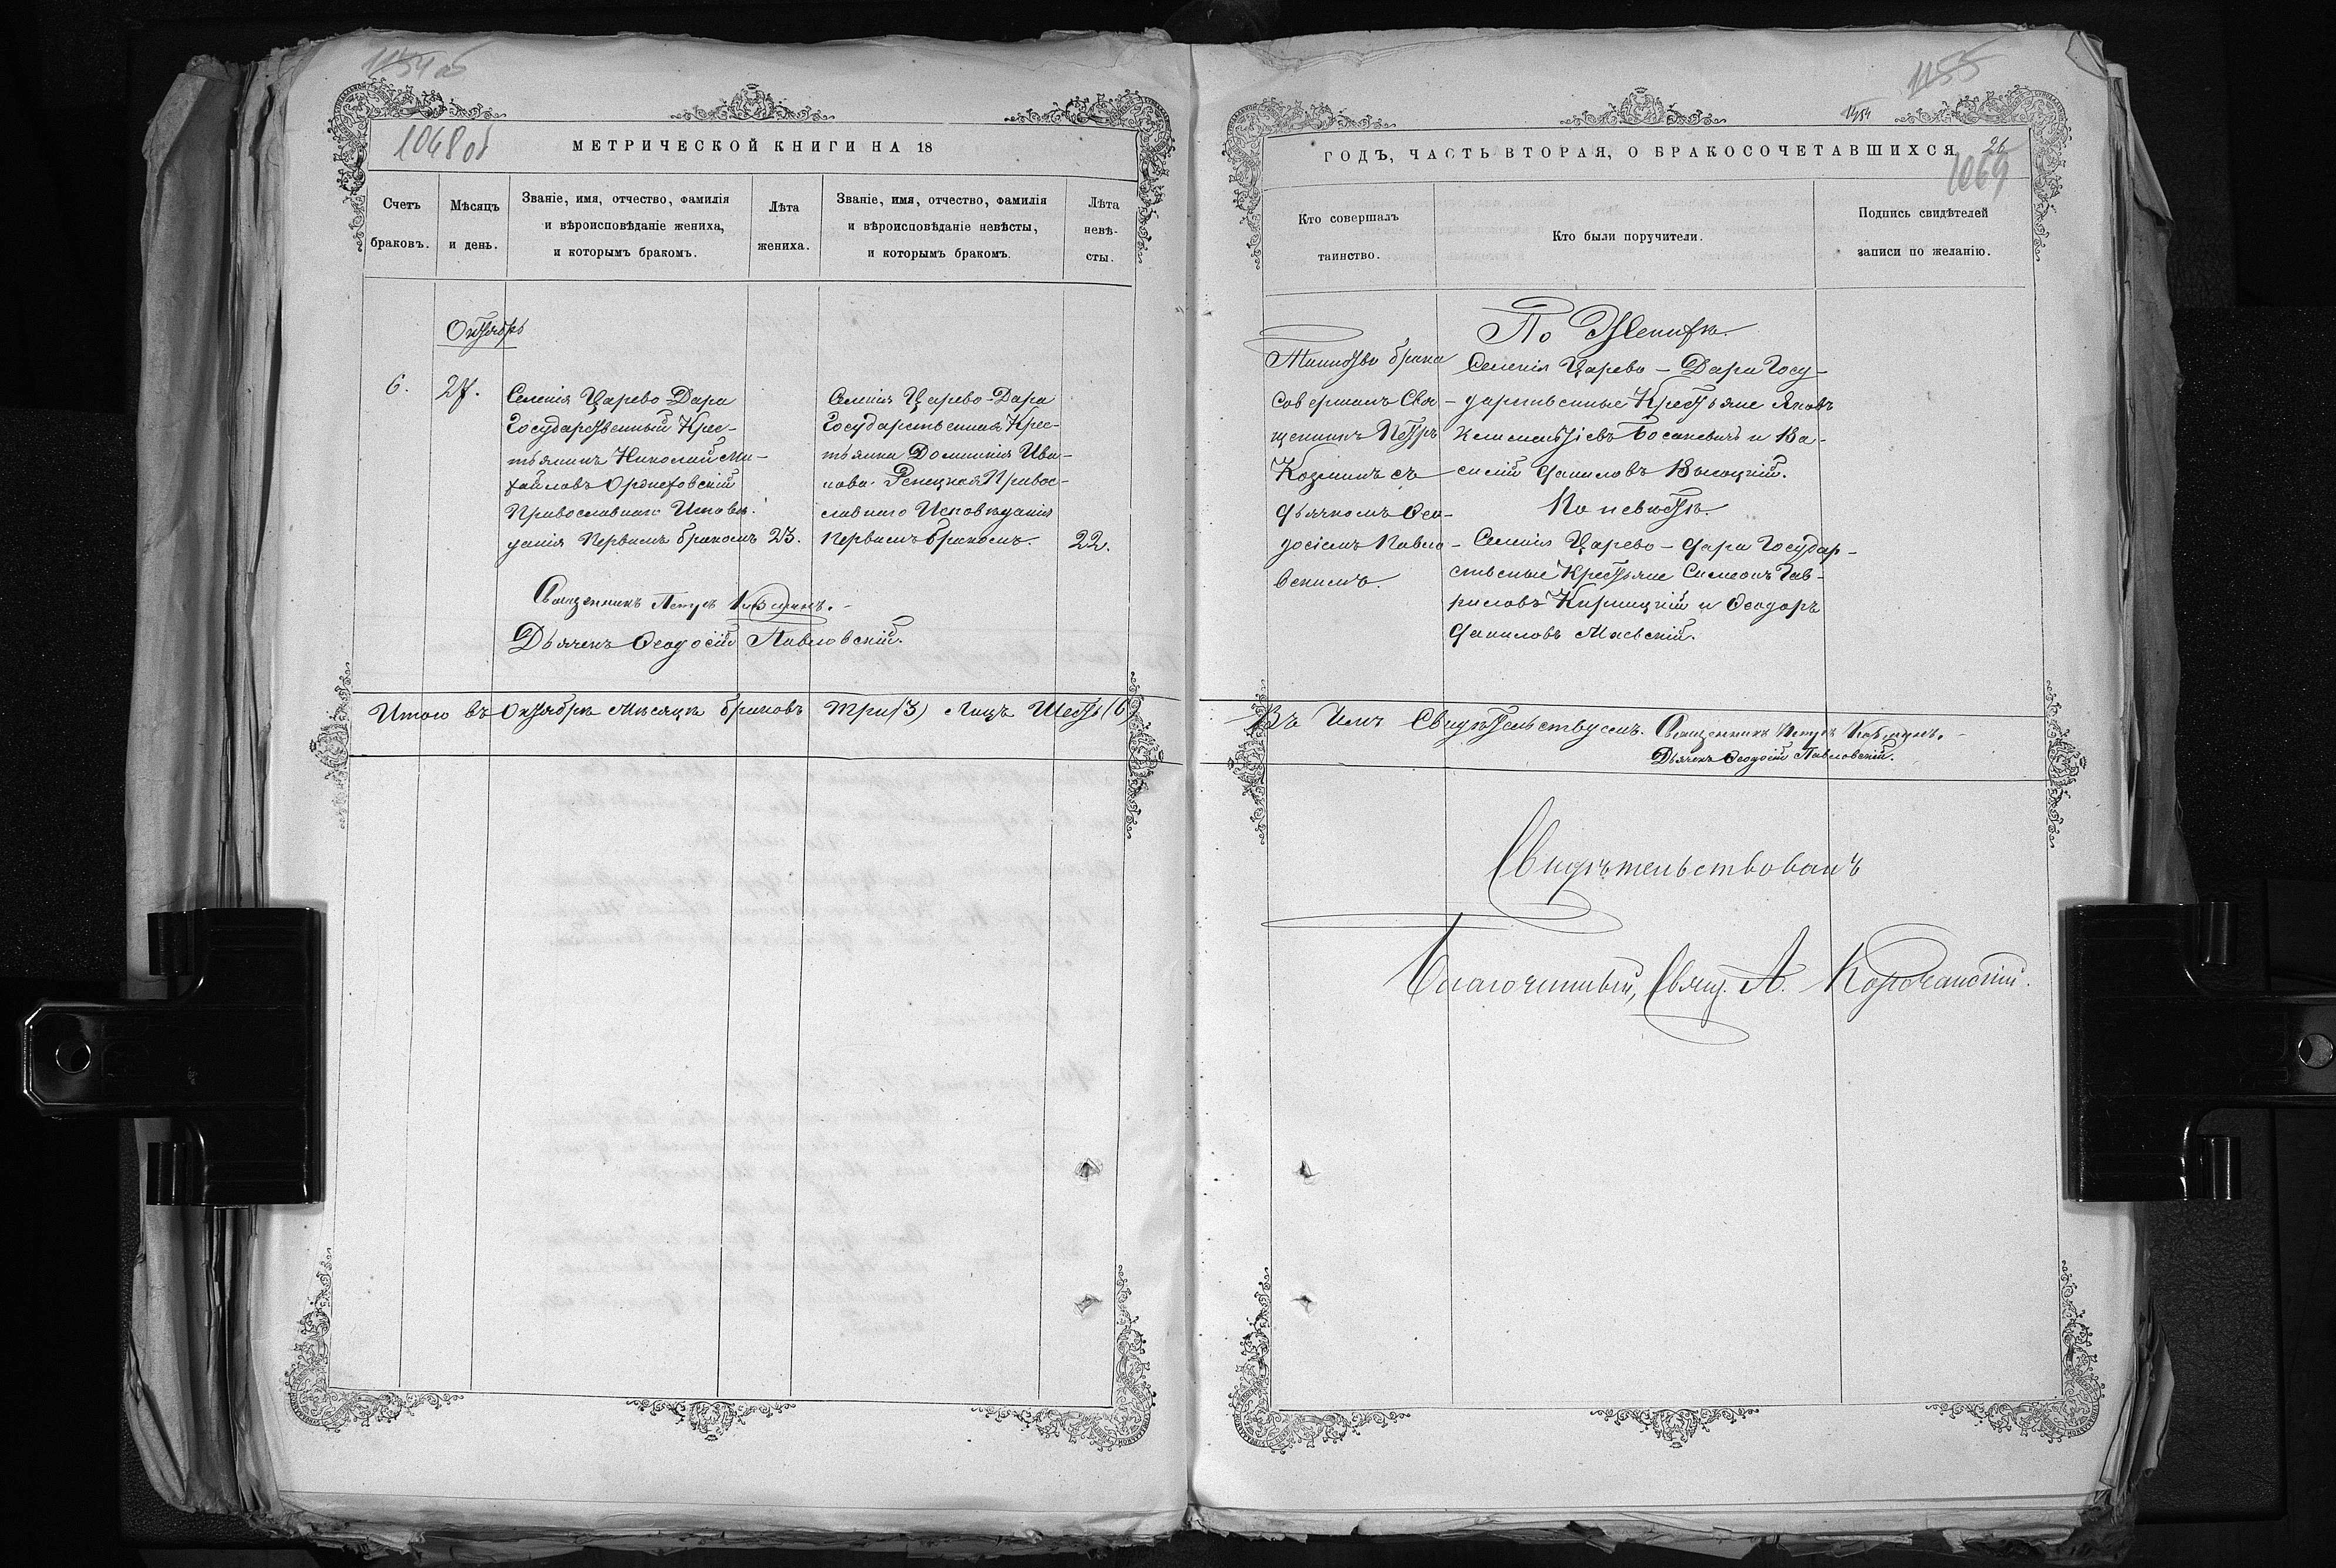 1154 об
1048 об
МЕТРИЧЕСКОЙ КНИГИ НА 18
Счетъ
браковъ.
Мѣсяцъ
и день.
Званіе, имя, отчество, фамилія
и вѣроисповѣданіе жениха,
и которымъ бракомъ.
Лѣта
жениха.
Званіе, имя, отчество, фамилія
и вѣроисповѣданіе невѣсты,
и которымъ бракомъ.
Лѣта
невѣ-
сты.
Октябрь
6. 27.
Селенія Царево-Дара
Государственный Крес-
тьянинъ Николай Ми-
хайловъ
Православнаго Исповѣ-
данія Первымъ бракомъ 23.
Селенія Царево-Дара
Государственная Крес-
тьянка Доминикія Ива-
нова Репецкая Правос-
лавнаго Исповѣданія
Первымъ бракомъ. 22.
Священникъ Петръ Козминъ.-
Дьячекъ Ѳеодосій Павловскій.
Итого въ Октябрѣ Мѣсяцѣ браковъ три (3) Лицъ Шесть (6)
1155
1454
26
1069
ГОДЪ, ЧАСТЬ ВТОРАЯ, О БРАКОСОЧЕТАВШИХСЯ
Кто совершалъ
таинство.
Кто были поручители.
Подпись свидѣтелей
записи по желанію.
Таинство брака
Совершалъ Свя-
щенникъ Петръ
Козминъ съ
дьячкомъ Ѳео-
досіемъ Павло-
вскимъ.
По Женихѣ.
Селенія Царево-Дара Госу-
дарственные Крестьяне Яковъ
Климентіевъ Босаневичъ и Ва-
силій Даниловъ Высоцкій.
По невѣстѣ.
Селенія Царево-Дара Государ-
ственые Крестьяне Симеонъ Гав-
риловъ Кирницкій и Ѳеодоръ
Даниловъ Маевскій.
Въ Чемъ Свидѣтельствуемъ. Священникъ Петръ Козминъ.-
Дьячекъ Ѳеодосій Павловскій.
Свидѣтельствовалъ
Благочинный, Свящ. А. Корчанскій.